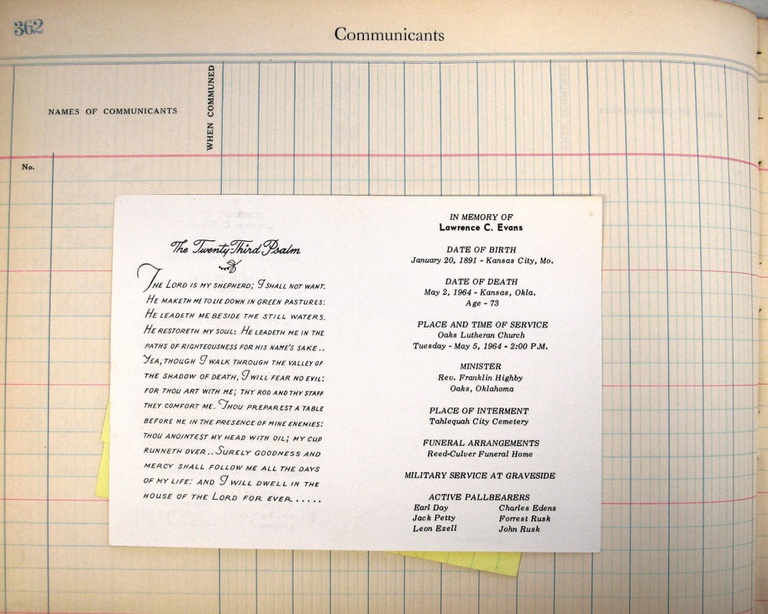 362
Communicants
NAMES OF COMMUNICANTS
WHEN COMMUNED
No.
The Twenty-Third Psalm
THE LORD IS MY SHEPHERD; I SHALL NOT WANT.
HE MAKETH ME TO LIE DOWN IN GREEN PASTURES:
HE LEADETH ME BESIDE THE STILL WATERS.
HE RESTORETH MY SOUL: HE LEADETH ME IN THE
PATHS OF RIGHTEOUSNESS FOR HIS NAME'S SAKE..
YEA, THOUGH I WALK THROUGH THE VALLEY OF
THE SHADOW OF DEATH, I WILL FEAR NO EVIL:
FOR THOU ART WITH ME; THY ROD AND THY STAFF
THEY COMFORT ME. THOU PREPAREST A TABLE
BEFORE ME IN THE PRESENCE OF MINE ENEMIES:
THOU ANOINTEST MY HEAD WITH OIL; MY CUP
RUNNETH OVER.. SURELY GOODNESS AND
MERCY SHALL FOLLOW ME ALL THE DAYS
OF MY LIFE: AND I WILL DWELL IN THE
HOUSE OF THE LORD FOR EVER.....
IN MEMORY OF
Lawrence C. Evans
DATE OF BIRTH
January 20, 1891 - Kansas City, Mo.
DATE OF DEATH
May 2, 1964 - Kansas, Okla.
Age - 73
PLACE AND TIME OF SERVICE
Oaks Lutheran Church
Tuesday - May 5, 1964 - 2:00 P.M.
MINISTER
Rev. Franklin Highby
Oaks, Oklahoma
PLACE OF INTERMENT
Tahlequah City Cemetery
FUNERAL ARRANGEMENTS
Reed-Culver Funeral Home
MILITARY SERVICE AT GRAVESIDE
ACTIVE PALLBEARERS
Earl Day Charles Edens
Jack Petty Forrest Rusk
Leon Ezell John Rusk